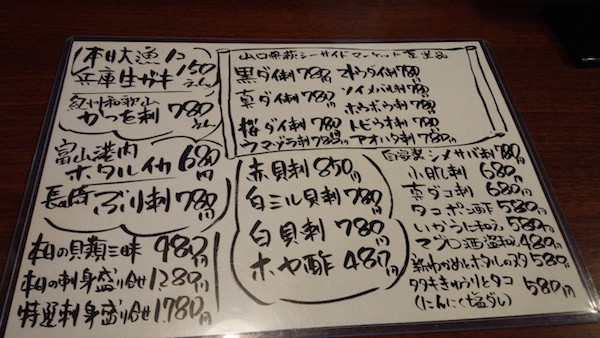 本日大漁
兵庫生ガキ 150円
紀州和歌山
かつを刺 780円
富山港内
ホタルイカ 680円
長崎 ぶり刺 780円
本日の貝類三昧 980円
本日の刺身盛り合せ 1280円
特選刺身盛り合せ 1780円
山口県萩シーサイドマーケット直送品
黒ダイ刺 780円 オウダイ刺 780円
真ダイ刺 780円 ソイメバル刺 780円
ホウボウ刺 780円
桜ダイ刺 780円 トビウオ刺 780円
ウマヅラ刺 780円 アオハタ刺 780円
赤貝刺 850円
白ミル貝刺 780円
白貝刺 780円
ホヤ酢 480円
自家製シメサバ刺 780円
小肌刺 680円
真ダコ刺 680円
タコポン酢 580円
いかうに和え 580円
マグロ酒盗和え 480円
新わかめとホタルのヌタ 580円
タタキきゅうりとタコ 580円
(にんにく塩ダレ)